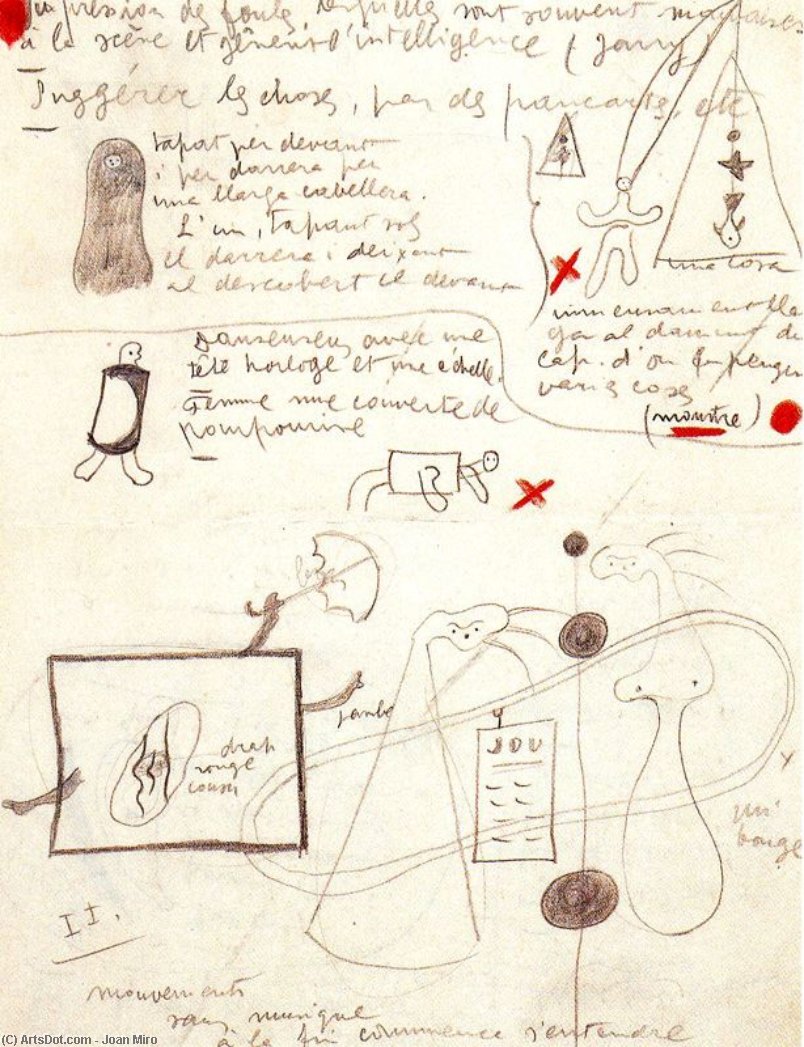 impression de foule, lesquelles sont souvent mauvaises
à la scène et gênent l'intelligence (Jarry)
Suggérer les choses, par des pancartes, etc
tapat per devant
i per darrera per
una llarga cabellera.
L'un, tapant sols
el darrera i deixant
al descobert el devant
una cosa
immensament lla
ga al damunt del
cap. d'on en pengen
varis coses
(monstre)
Danseuses avec une
tête horloge et une échelle.
Femme nue couverte de
pompourine
jambe
drap
rouge
cousu
JOU
qui
bouge
II.
mouvements
sans musique
à la fin commence s'entendre
(C) ArtsDot.com - Joan Miro